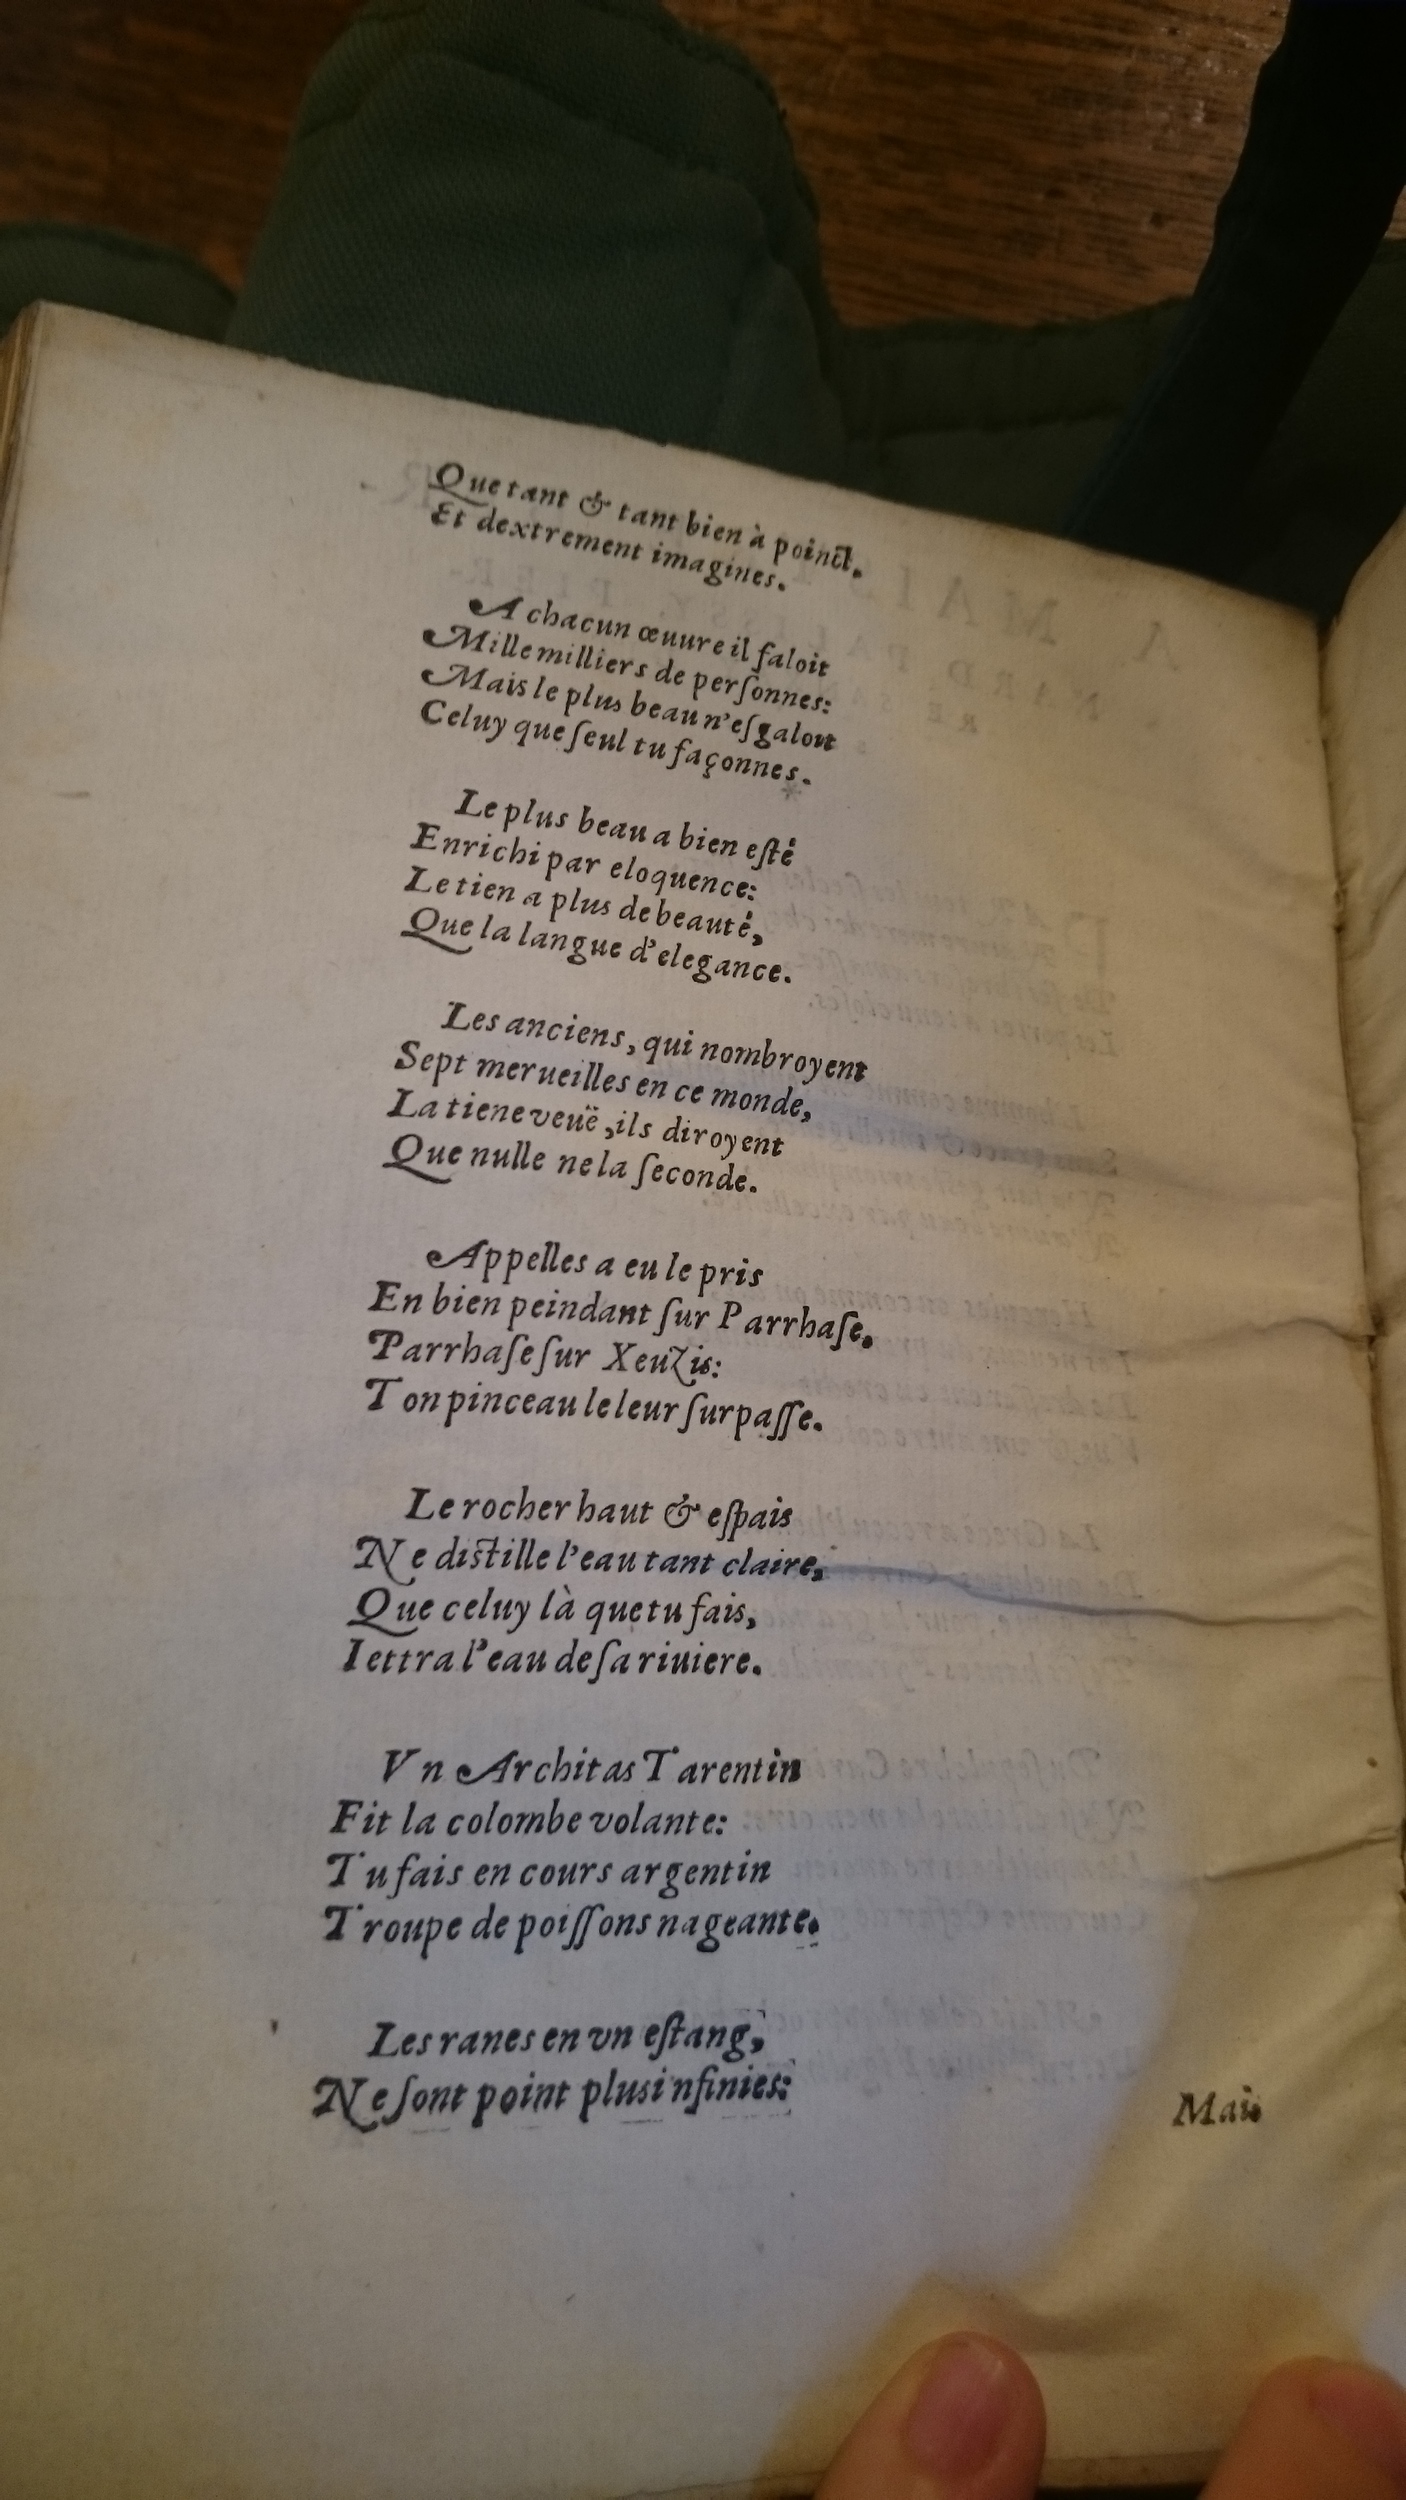 Que tant & tant bien à poinct.
Et dextrement imagines.
A chacun œuure il faloit
Mille milliers de perſonnes:
Mais le plus beau n'eſgaloit
Celuy que ſeul tu façonnes.
Le plus beau a bien eſté
Enrichi par eloquence:
Le tien a plus de beauté,
Que la langue d'elegance.
Les anciens, qui nombroyent
Sept merueilles en ce monde,
La tiene veuë, ils diroyent
Que nulle ne la ſeconde.
Appelles a eu le pris
En bien peindant ſur Parrhaſe.
Parrhaſe ſur Xeuzis:
Ton pinceau le leur ſurpaſſe.
Le rocher haut & eſpais
Ne distille l'eau tant claire,
Que celuy là que tu fais,
Iettra l'eau de ſa riuiere.
Vn Architas Tarentin
Fit la colombe volante:
Tu fais en cours argentin
Troupe de poiſſons nageante.
Les ranes en vn eſtang,
Ne ſont point plus infinies:
Mais